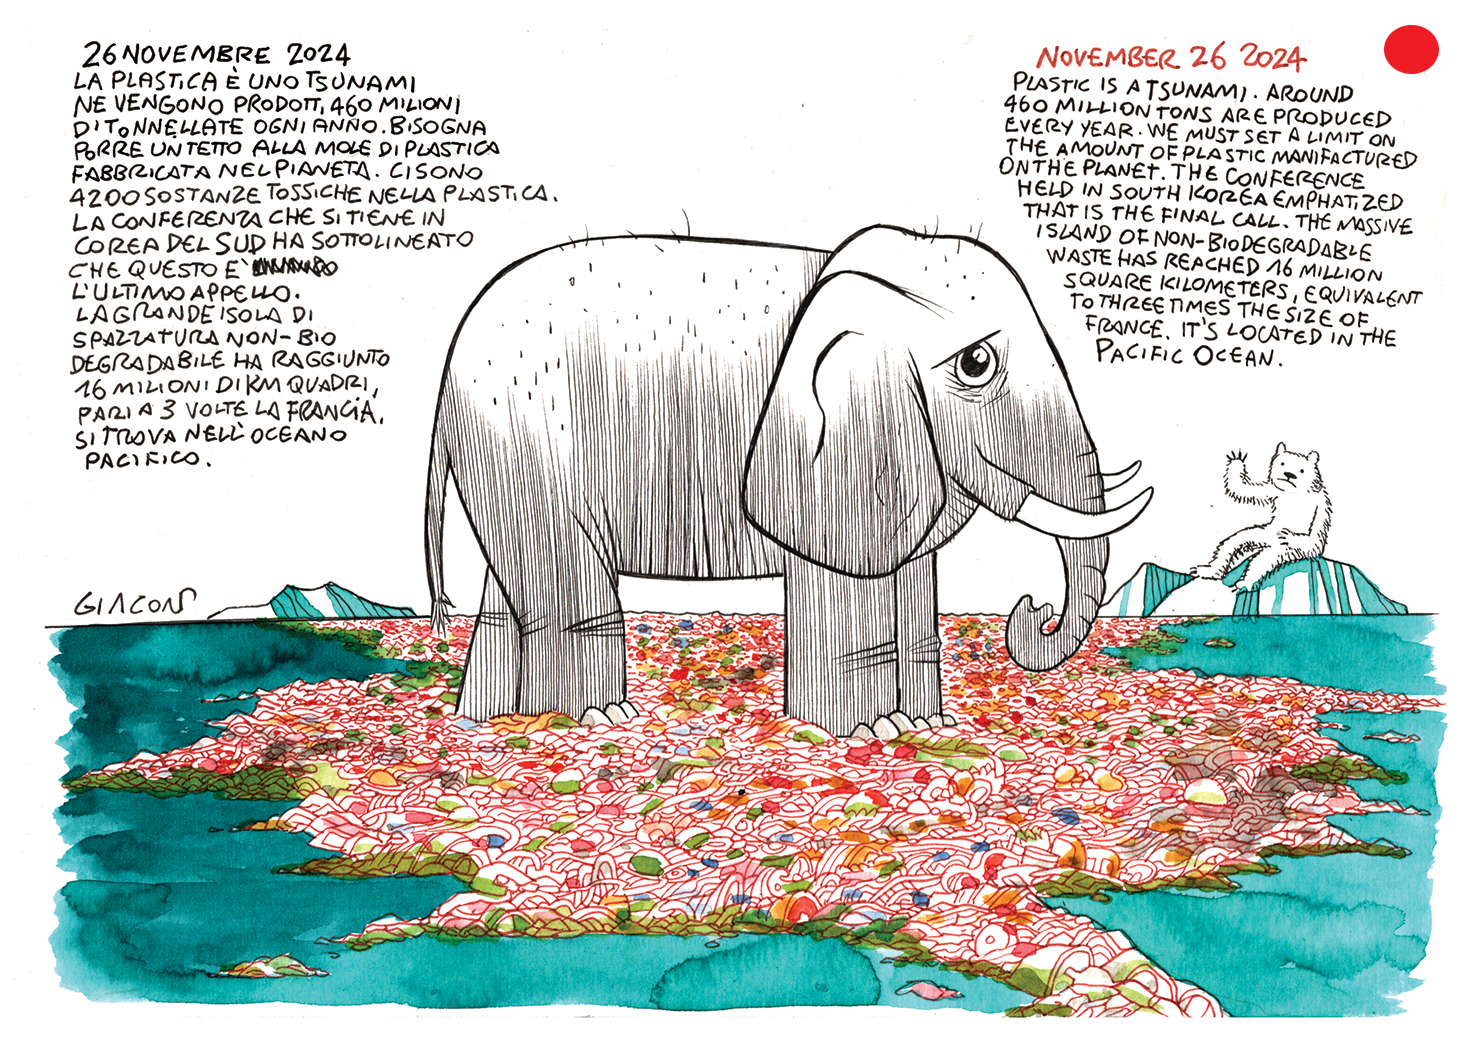 26 NOVEMBRE 2024
LA PLASTICA È UNO TSUNAMI
NE VENGONO PRODOTTI, 460 MILIONI
DI TONNELLATE OGNI ANNO. BISOGNA
PORRE UN TETTO ALLA MOLE DI PLASTICA
FABBRICATA NEL PIANETA. CI SONO
4200 SOSTANZE TOSSICHE NELLA PLASTICA.
LA CONFERENZA CHE SI TIENE IN
COREA DEL SUD HA SOTTOLINEATO
CHE QUESTO E'
L'ULTIMO APPELLO.
LA GRANDE ISOLA DI
SPAZZATURA NON-BIO
DEGRADABILE HA RAGGIUNTO
16 MILIONI DI KM QUADRI,
PARI A 3 VOLTE LA FRANCIA.
SI TROVA NELL'OCEANO
PACIFICO.
NOVEMBER 26 2024
PLASTIC IS A TSUNAMI. AROUND
460 MILLION TONS ARE PRODUCED
EVERY YEAR. WE MUST SET A LIMIT ON
THE AMOUNT OF PLASTIC MANIFACTURED
ON THE PLANET. THE CONFERENCE
HELD IN SOUTH KOREA EMPHATIZED
THAT IS THE FINAL CALL. THE MASSIVE
ISLAND OF NON-BIODEGRADABLE
WASTE HAS REACHED 16 MILLION
SQUARE KILOMETERS, EQUIVALENT
TO THREE TIMES THE SIZE OF
FRANCE. IT'S LOCATED IN THE
PACIFIC OCEAN.
GIACON